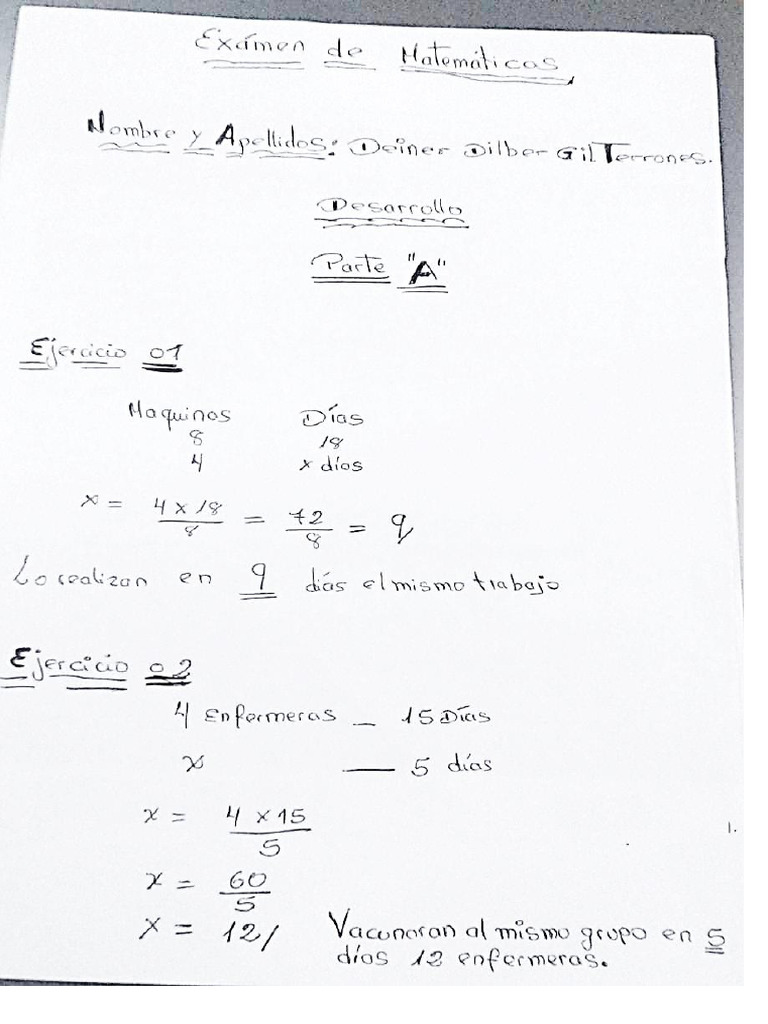 Exámen de Matemáticas
Nombre y Apellidos: Deiner Dilber Gil Terrones.
Desarrollo
Parte "A"
Ejercicio 01
Maquinas Días
8 18
4 x días
x = 4 x 18 / 8 = 72 / 8 = 9
Lo realizan en 9 días el mismo trabajo
Ejercicio 02
4 Enfermeras _ 15 Días
x — 5 días
x = 4 x 15 / 5
x = 60 / 5
x = 12/ Vacunaran al mismo grupo en 5
días 12 enfermeras.
1.